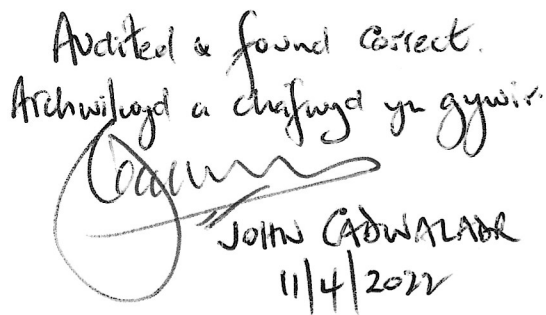 Audited & found correct.
Archwiliwyd a chafwyd yn gywir.
JOHN CADWALADR
11/4/2022